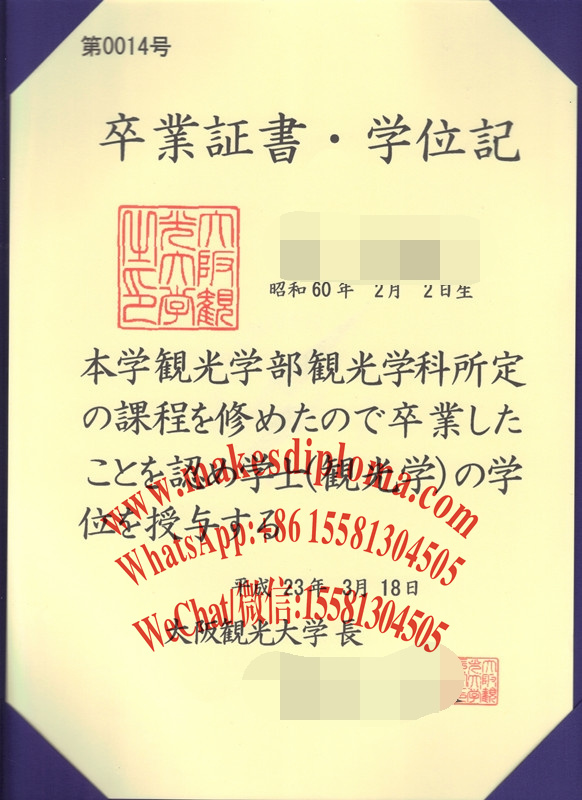 第0014号
卒業証書・学位記
大阪観光大学之印
昭和60年 2月 2日生
本学観光学部観光学科所定
の課程を修めたので卒業した
ことを認め学士(観光学)の学
位を授与する
www.makesdiploma.com
WhatsApp:+86 15581304505
平成 23年 3月 18日
WeChat/微信:15581304505
大阪観光大学長